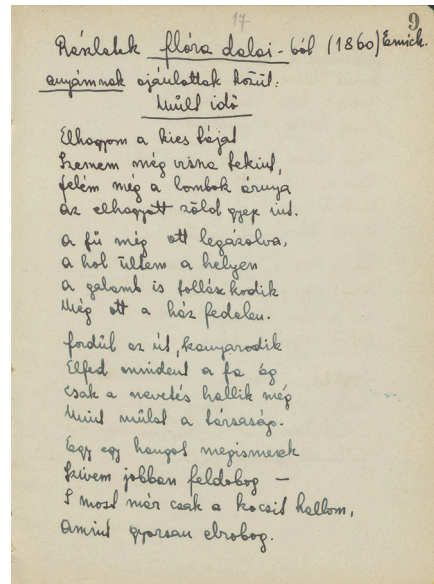 17
9
Részletek flóra dalai-ból (1860) Emich.
anyámnak ajánlottak közül:
Múlt idő
Elhagyom a kies tájat
Szemem még vissza tekint,
felém még a lombok árnya
az elhagyott zöld gyep int.
a fű még ott legázolva,
a hol ültem a helyen
a galamb is tollászkodik
Még ott a ház fedelen.
fordúl az út, kanyarodik
Elfed mindent a fa ág
csak a nevetés hallik még
Mint múlat a társaság.
Egy egy hangot megismerek
Szivem jobban feldobog —
S most már csak a kocsit hallom,
amint gyorsan elrobog.